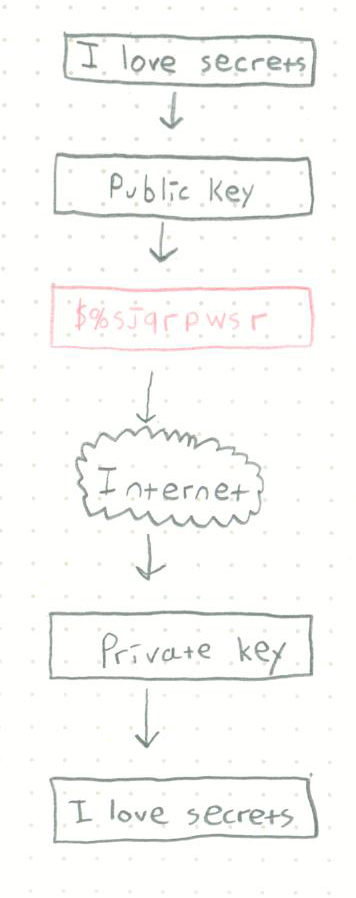 I love secrets
Public key
$%sjqrpwsr
Internet
Private key
I love secrets